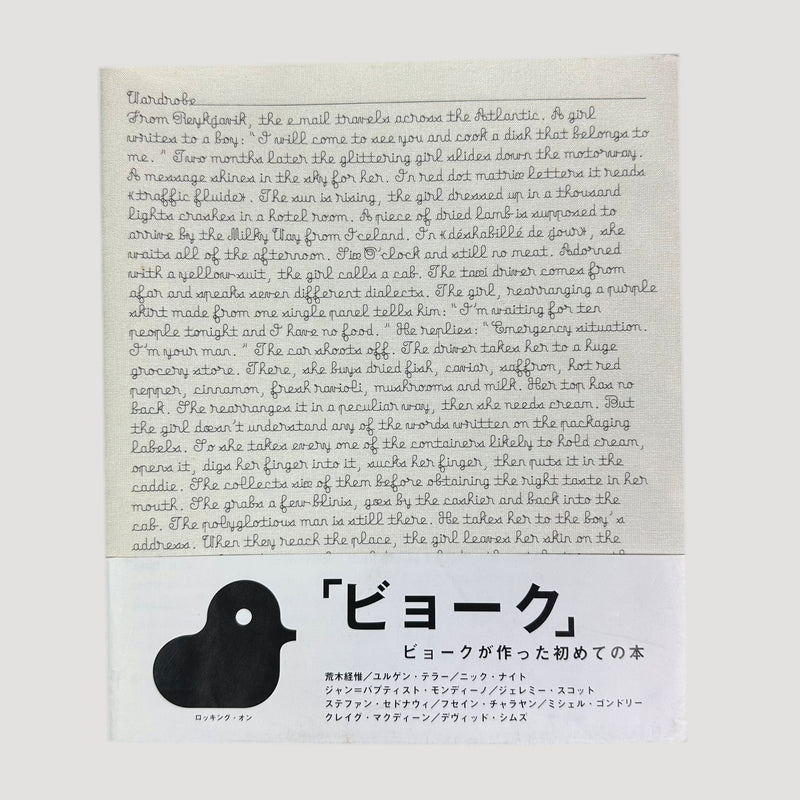 Wardrobe
From Reykjavik, the e.mail travels across the Atlantic. A girl
writes to a boy: "I will come to see you and cook a dish that belongs to
me." Two months later the glittering girl slides down the motorway.
A message shines in the sky for her. In red dot matrix letters it reads
«traffic fluide». The sun is rising, the girl dressed up in a thousand
lights crashes in a hotel room. A piece of dried lamb is supposed to
arrive by the Milky Way from Iceland. In «déshabillé de jour», she
waits all of the afternoon. Six O'clock and still no meat. Adorned
with a yellow suit, the girl calls a cab. The taxi driver comes from
afar and speaks seven different dialects. The girl, rearranging a purple
skirt made from one single panel tells him: "I'm waiting for ten
people tonight and I have no food." He replies: "Emergency situation.
I'm your man." The car shoots off. The driver takes her to a huge
grocery store. There, she buys dried fish, caviar, saffron, hot red
pepper, cinnamon, fresh ravioli, mushrooms and milk. Her top has no
back. She rearranges it in a peculiar way, then she needs cream. But
the girl doesn't understand any of the words written on the packaging
labels. So she takes every one of the containers likely to hold cream,
opens it, digs her finger into it, sucks her finger, then puts it in the
caddie. She collects six of them before obtaining the right taste in her
mouth. She grabs a few blinis, goes by the cashier and back into the
cab. The polyglotious man is still there. He takes her to the boy's
address. When they reach the place, the girl leaves her skin on the
「ビョーク」
ビョークが作った初めての本
荒木経惟／ユルゲン・テラー／ニック・ナイト
ジャン＝バプティスト・モンディーノ／ジェレミー・スコット
ステファン・セドナウィ／フセイン・チャラヤン／ミシェル・ゴンドリー
クレイグ・マクディーン／デヴィッド・シムズ
ロッキング・オン